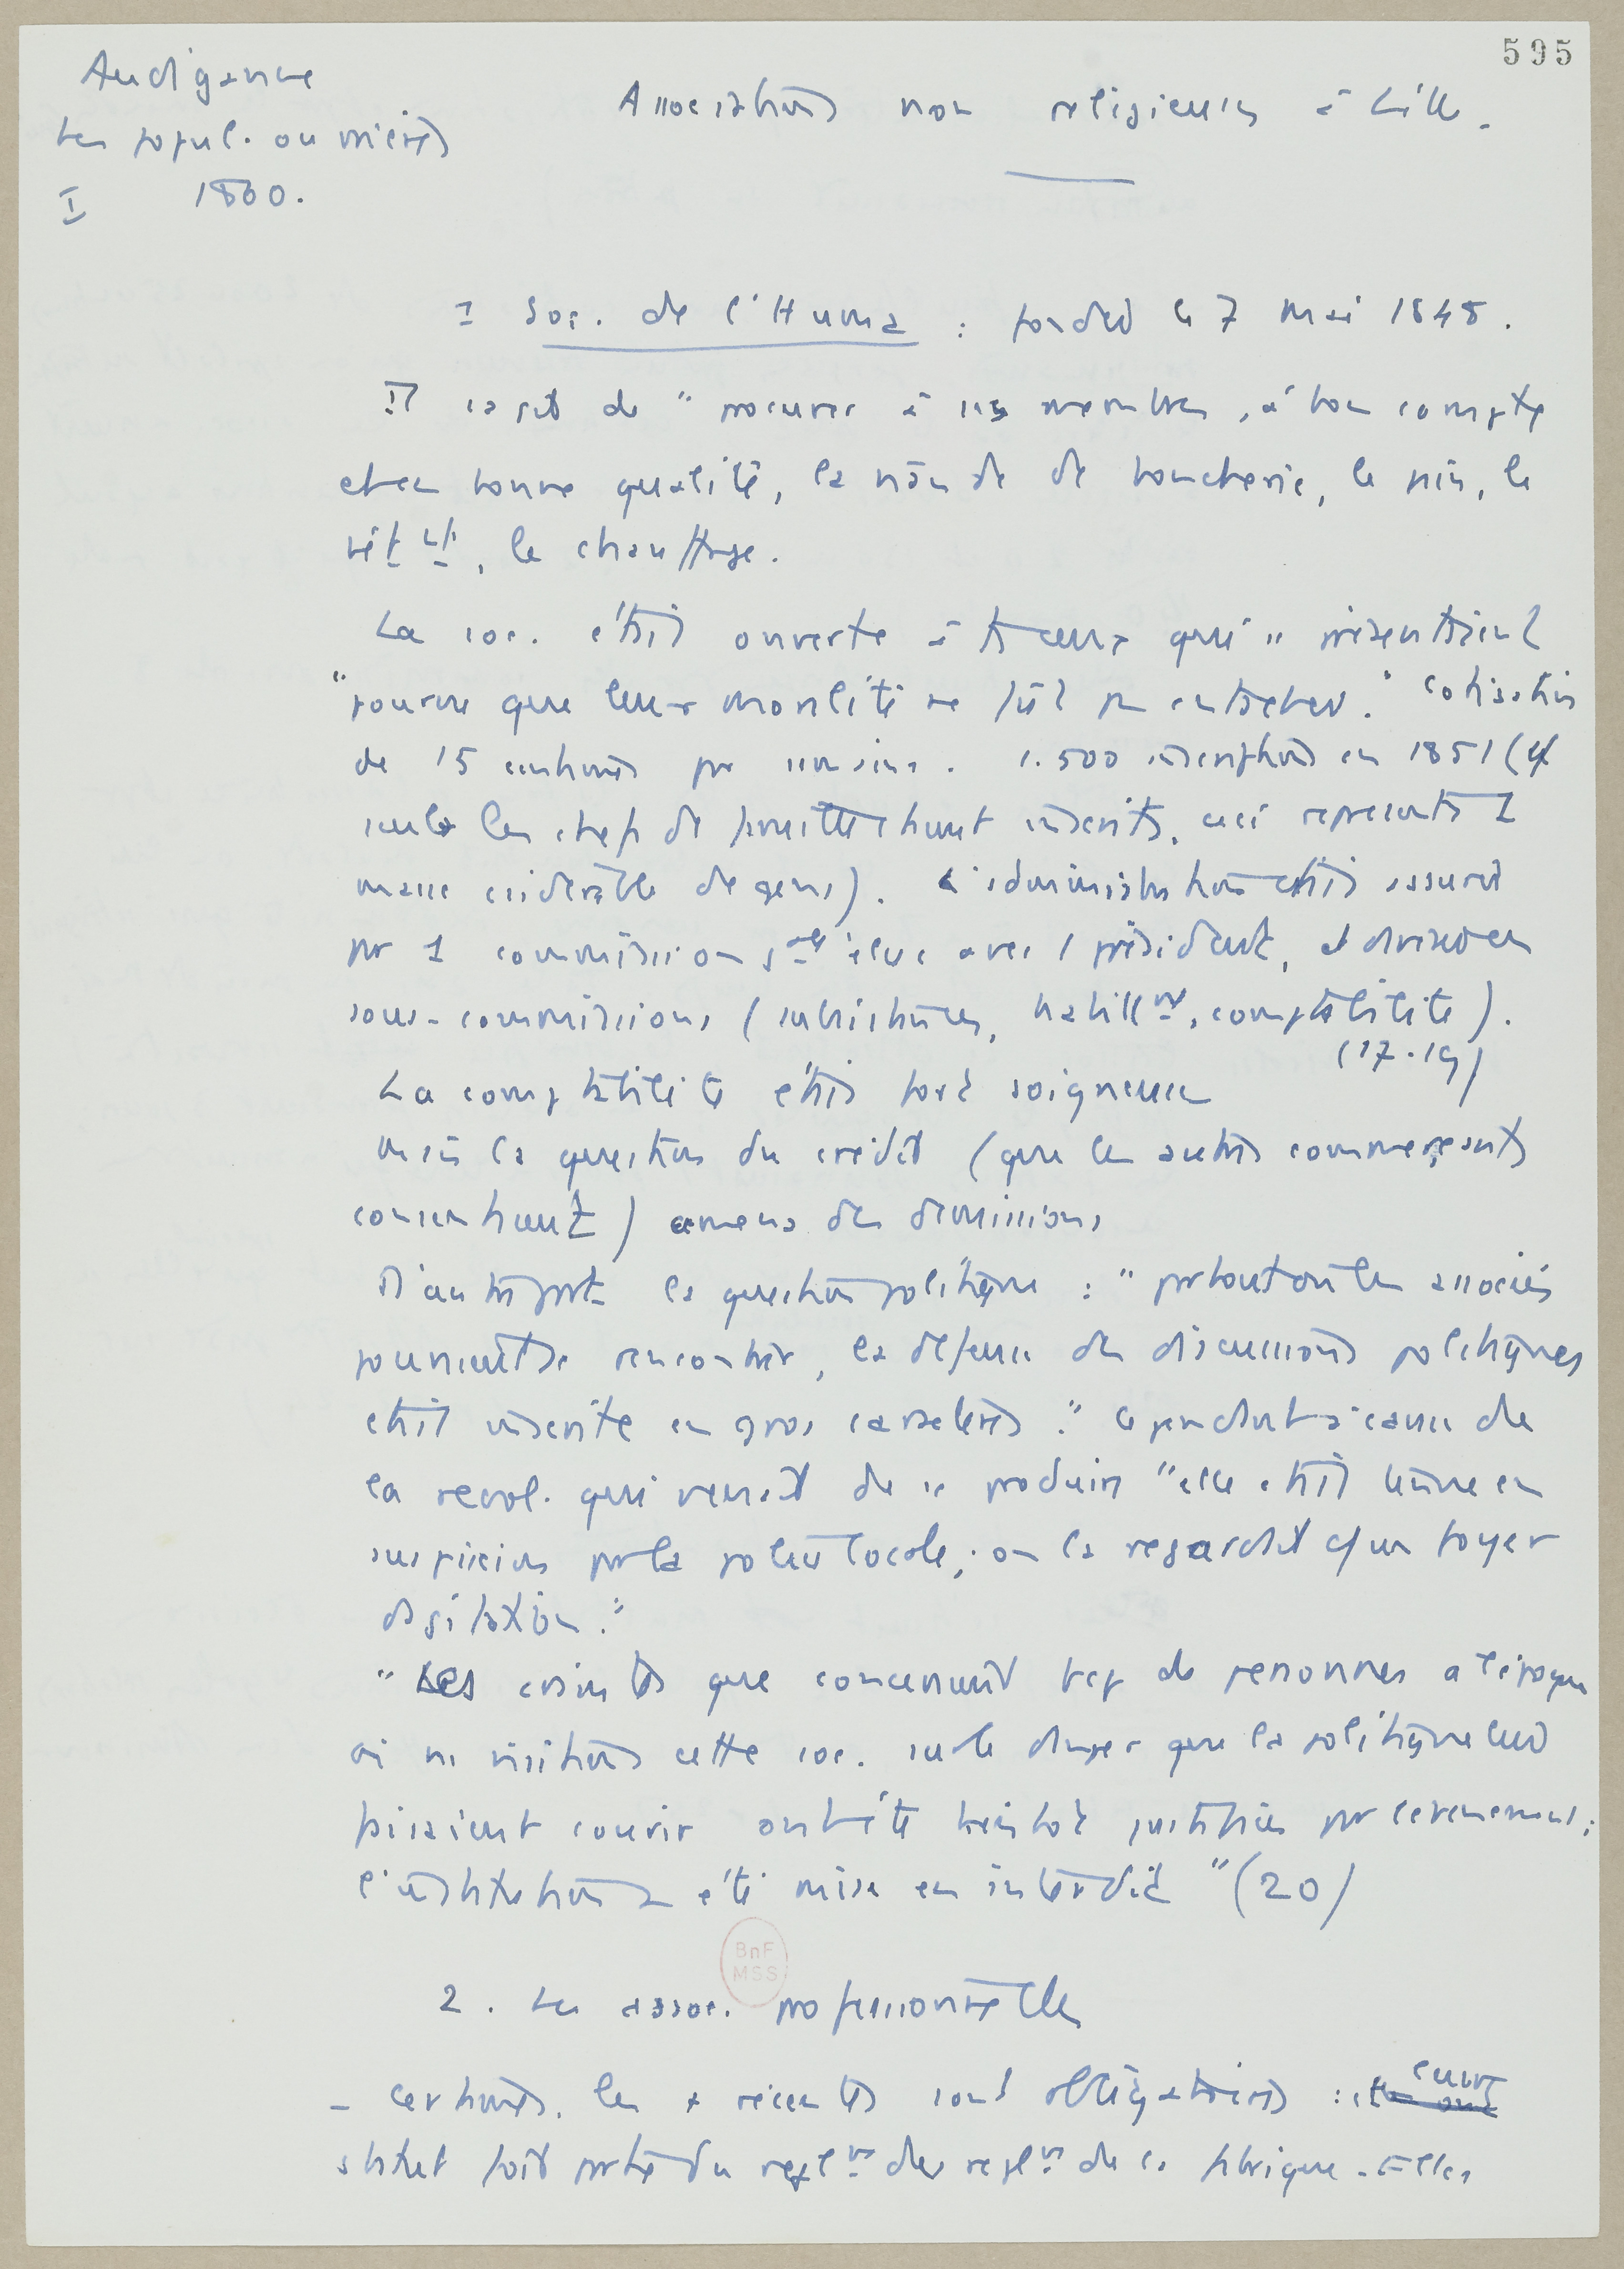 595
Audiganne
Les popul. ouvrières
I 1860.
Associations non religieuses à Lille.
1 Soc. de l'Huma : fondée le 7 mai 1848.
Il s'agit de "procurer à ses membres, à bon compte
et en bonne qualité, la viande de boucherie, le pain, le
vêt nt, le chauffage.
La soc. était ouverte à ts ceux qui se présentaient
"pourvu que leur moralité ne fût pas entachée." Cotisation
de 15 centimes par semaine. 1.500 inscriptions en 1851 (cf
seuls les chefs de famille étaient inscrits, ceci représente 1
masse considérable de gens). L'administration était assurée
par 1 commission gale élue avec 1 président, et divisée en
sous-commissions (subsistances, habillnt, comptabilité).
(17-19)
La comptabilité était fort soigneuse
mais la question du crédit (que les autres commerçants
consentaient) amena des démissions
D'autre part la question politique : "partout où les associés
pouvaient se rencontrer, la défense des discussions politiques
était inscrite en gros caractères." Cependant à cause de
la révol. qui venait de se produire "elle était tenue en
suspicion par la police locale; on la regardait c/ un foyer
d'agitation."
"Les craintes que concevaient bcp de personnes à l'époque
où ns visitions cette soc. sur le danger que la politique lui
faisaient courir ont été bientôt justifiées par l'événement;
l'institution a été mise en interdit" (20)
BnF
MSS
2. Les assoc. professionnelles
- Certaines, les + récentes sont obligatoires : leur
statut fait partie du reglnt des reglnt de la fabrique. Elles